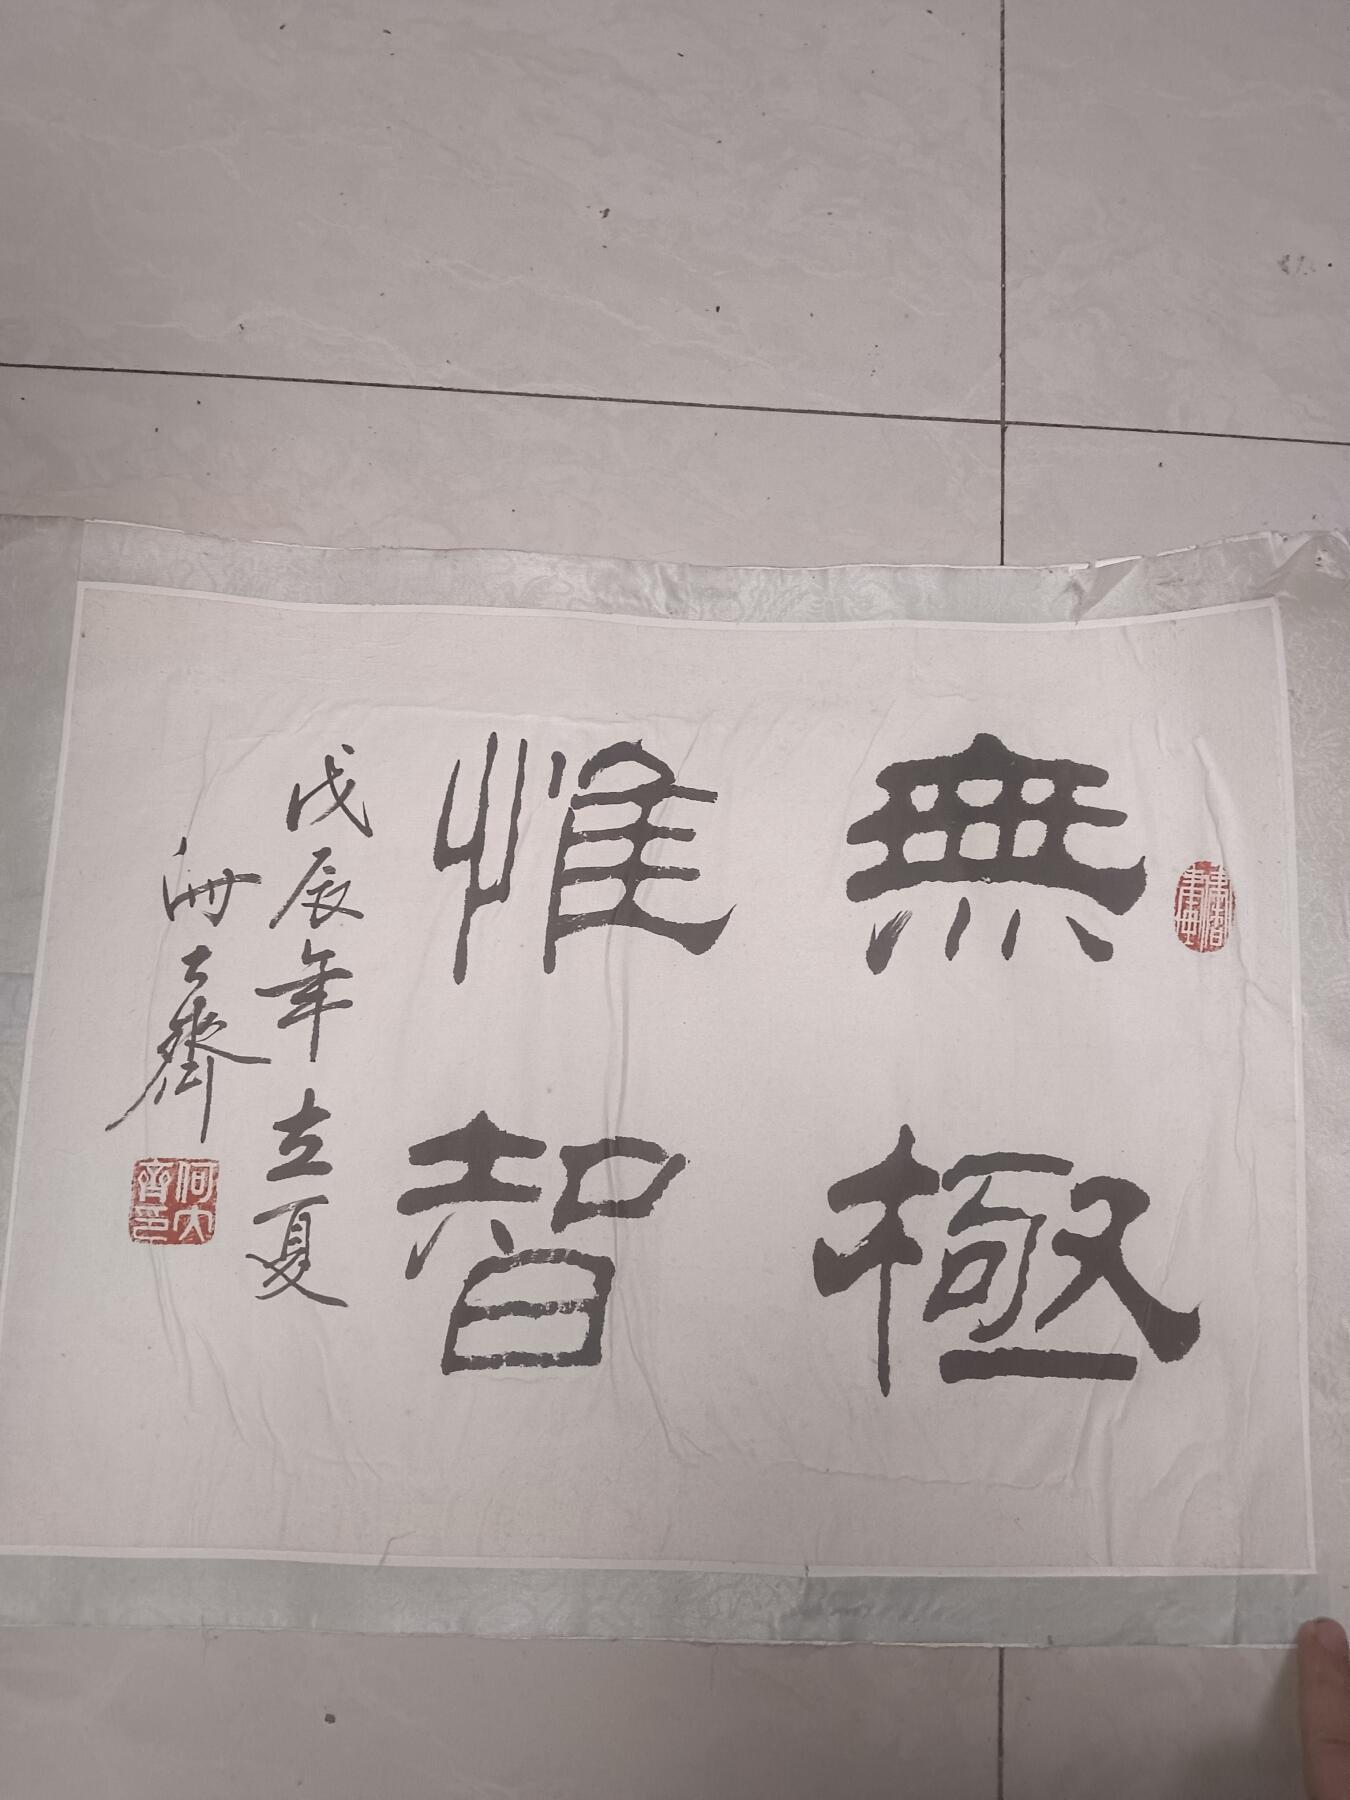 無極
惟智
戊辰年立夏
何大齊
何大
齊印